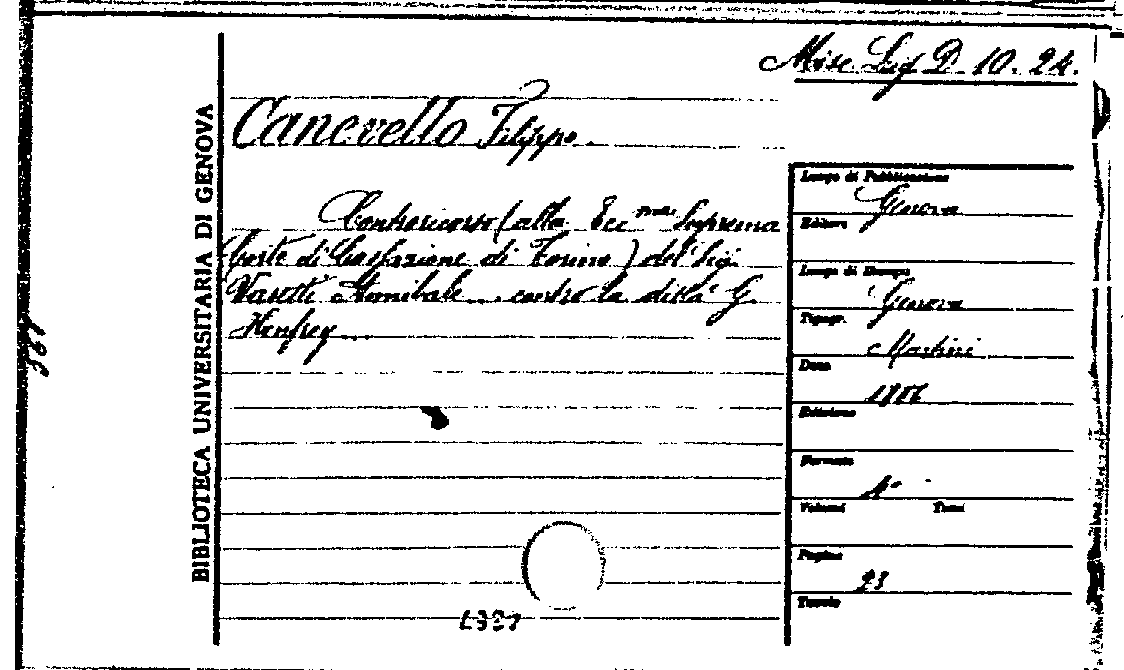 Misc. Lig D. 10. 24.
BIBLIOTECA UNIVERSITARIA DI GENOVA
Canevello Filippo.
Controricorso (alla Ecc.ma Suprema
Corte di Cassazione di Torino) del Sig.
Vasetti Annibale ... contro la ditta G.
Henfrey ...
Luogo di Pubblicazione
Genova
Editore
Luogo di Stampa
Genova
Tipogr.
Martini
Data
Edizione
Formato
4°
Volumi Tomi
Pagine
23
Tavole